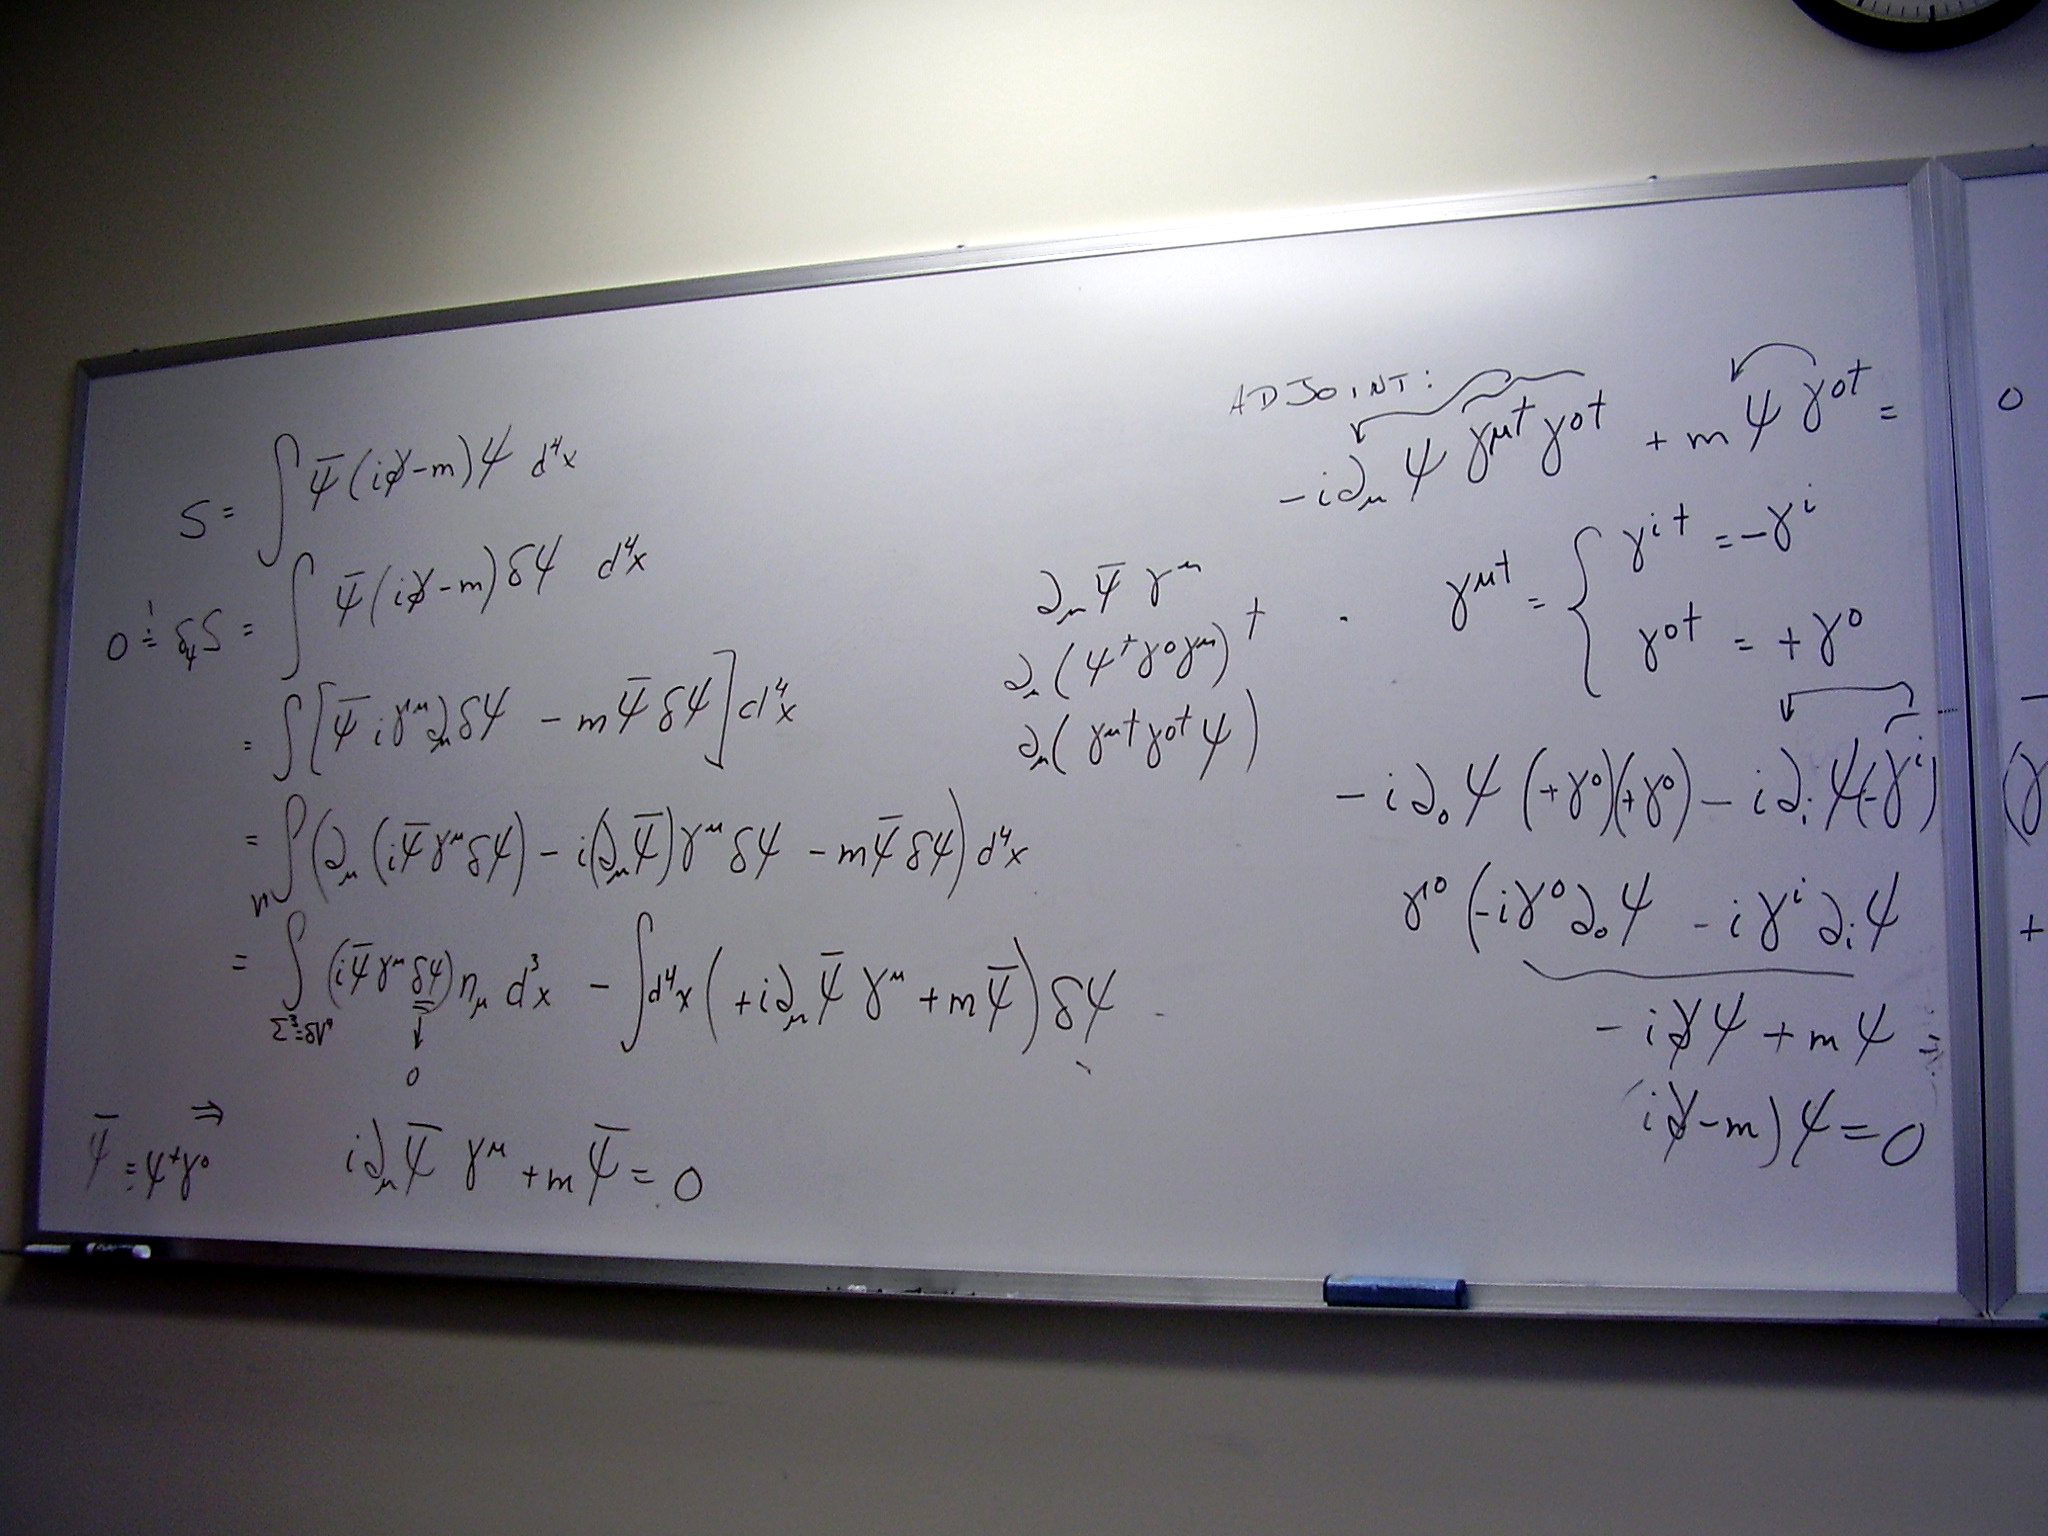 S = ∫ ψ̄ (i∂̸ - m) ψ d⁴x
0 =! δ_ψ S = ∫ ψ̄ (i∂̸ - m) δψ d⁴x
= ∫ [ψ̄ iγ^μ ∂_μ δψ - m ψ̄ δψ] d⁴x
= ∫ (∂_μ (iψ̄ γ^μ δψ) - i(∂_μ ψ̄) γ^μ δψ - m ψ̄ δψ) d⁴x
= ∫_{Σ³=∂V⁴} (iψ̄ γ^μ δψ) n_μ d³x - ∫ d⁴x (+i∂_μ ψ̄ γ^μ + m ψ̄) δψ
↓
0
⇒ i∂_μ ψ̄ γ^μ + m ψ̄ = 0
ψ̄ = ψ^† γ⁰
∂_μ ψ̄ γ^μ
∂_μ (ψ^† γ⁰ γ^μ)^†
∂_μ (γ^{μ†} γ^{0†} ψ)
ADJOINT:
-i∂_μ ψ γ^{μ†} γ^{0†} + m ψ γ^{0†} = 0
γ^{μ†} = { γ^{i†} = -γ^i
γ^{0†} = +γ⁰
-i∂₀ ψ (+γ⁰)(+γ⁰) - i∂_i ψ (-γ^i)
γ⁰ (-iγ⁰ ∂₀ ψ - iγ^i ∂_i ψ
-i∂̸ψ + mψ
(i∂̸ - m) ψ = 0
-
(γ
+